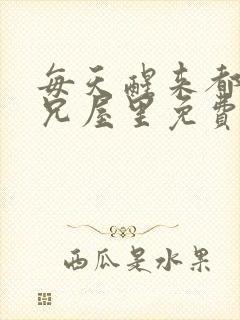 每天醒来都
兄屋里免費
西瓜是水果